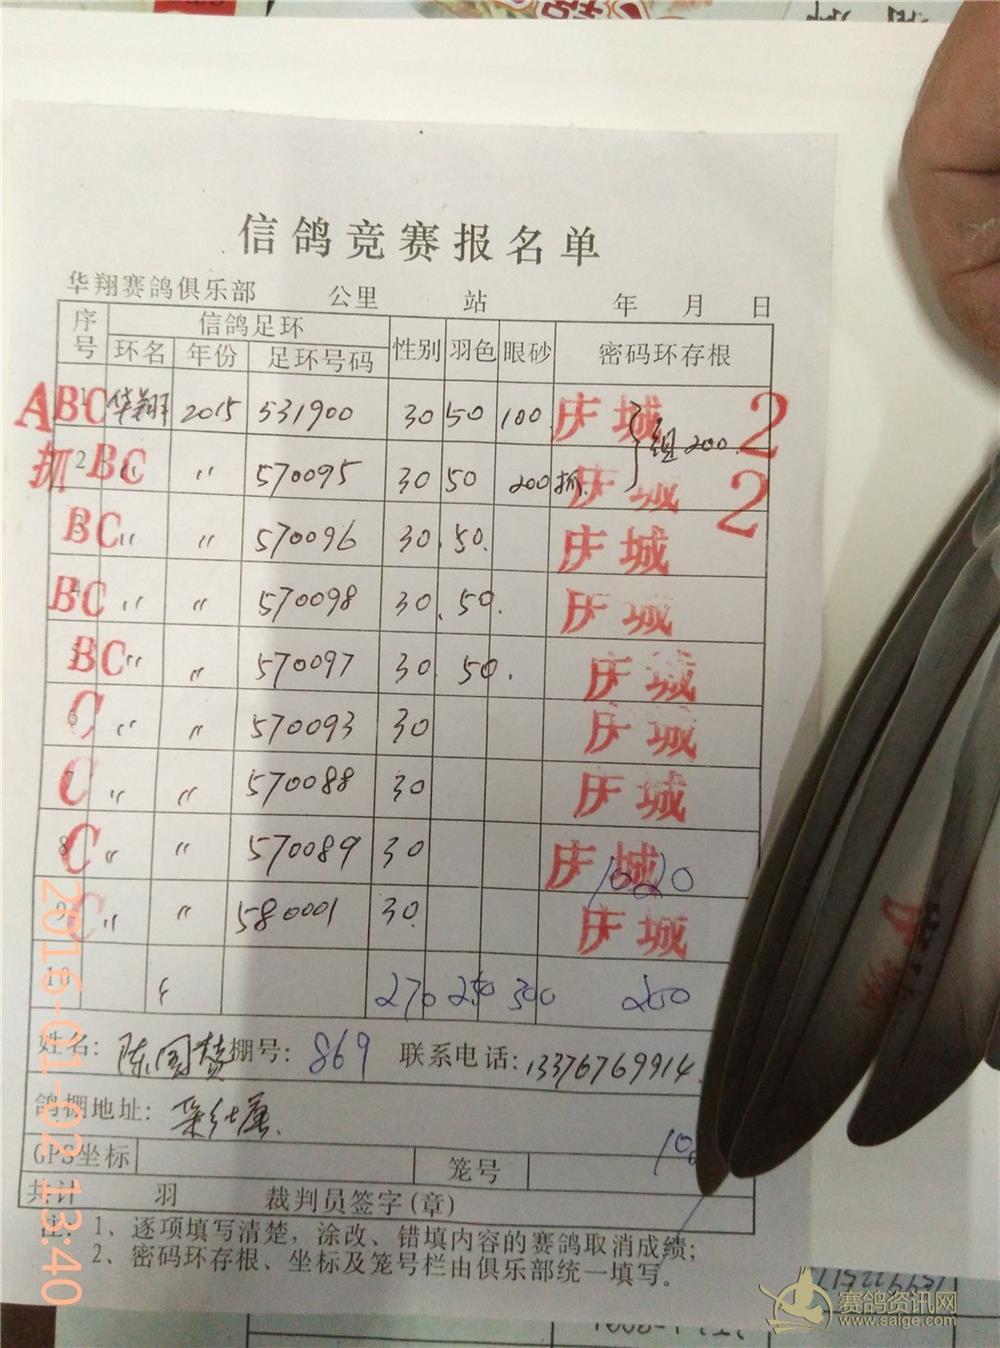 信鸽竞赛报名单
华翔赛鸽俱乐部 公里 站 年 月 日
序号 信鸽足环 性别 羽色 眼砂 密码环存根
环名 年份 足环号码
ABC 1 华翔 2015 531900 30 50 100 庆城 组200 2
抓 BC 2 〃 〃 570095 30 50 200抓 庆城 2
BC 3 〃 〃 570096 30. 50. 庆城
BC 4 〃 〃 570098 30. 50. 庆城
BC 5 〃 〃 570097 30 50. 庆城
C 6 〃 〃 570093 30 庆城
C 7 〃 〃 570088 30 庆城
C 8 〃 〃 570089 30 庆城 1020
C 9 〃 〃 580001 30. 庆城
10 270 250 300 200
姓名: 陈国赞 棚号: 869 联系电话: 13376769914
鸽棚地址:
GPS坐标 笼号
共计 羽 裁判员签字(章)
注: 1、逐项填写清楚，涂改、错填内容的赛鸽取消成绩;
2、密码环存根、坐标及笼号栏由俱乐部统一填写。
2016-01-02 13:40
赛鸽资讯网
www.saige.com